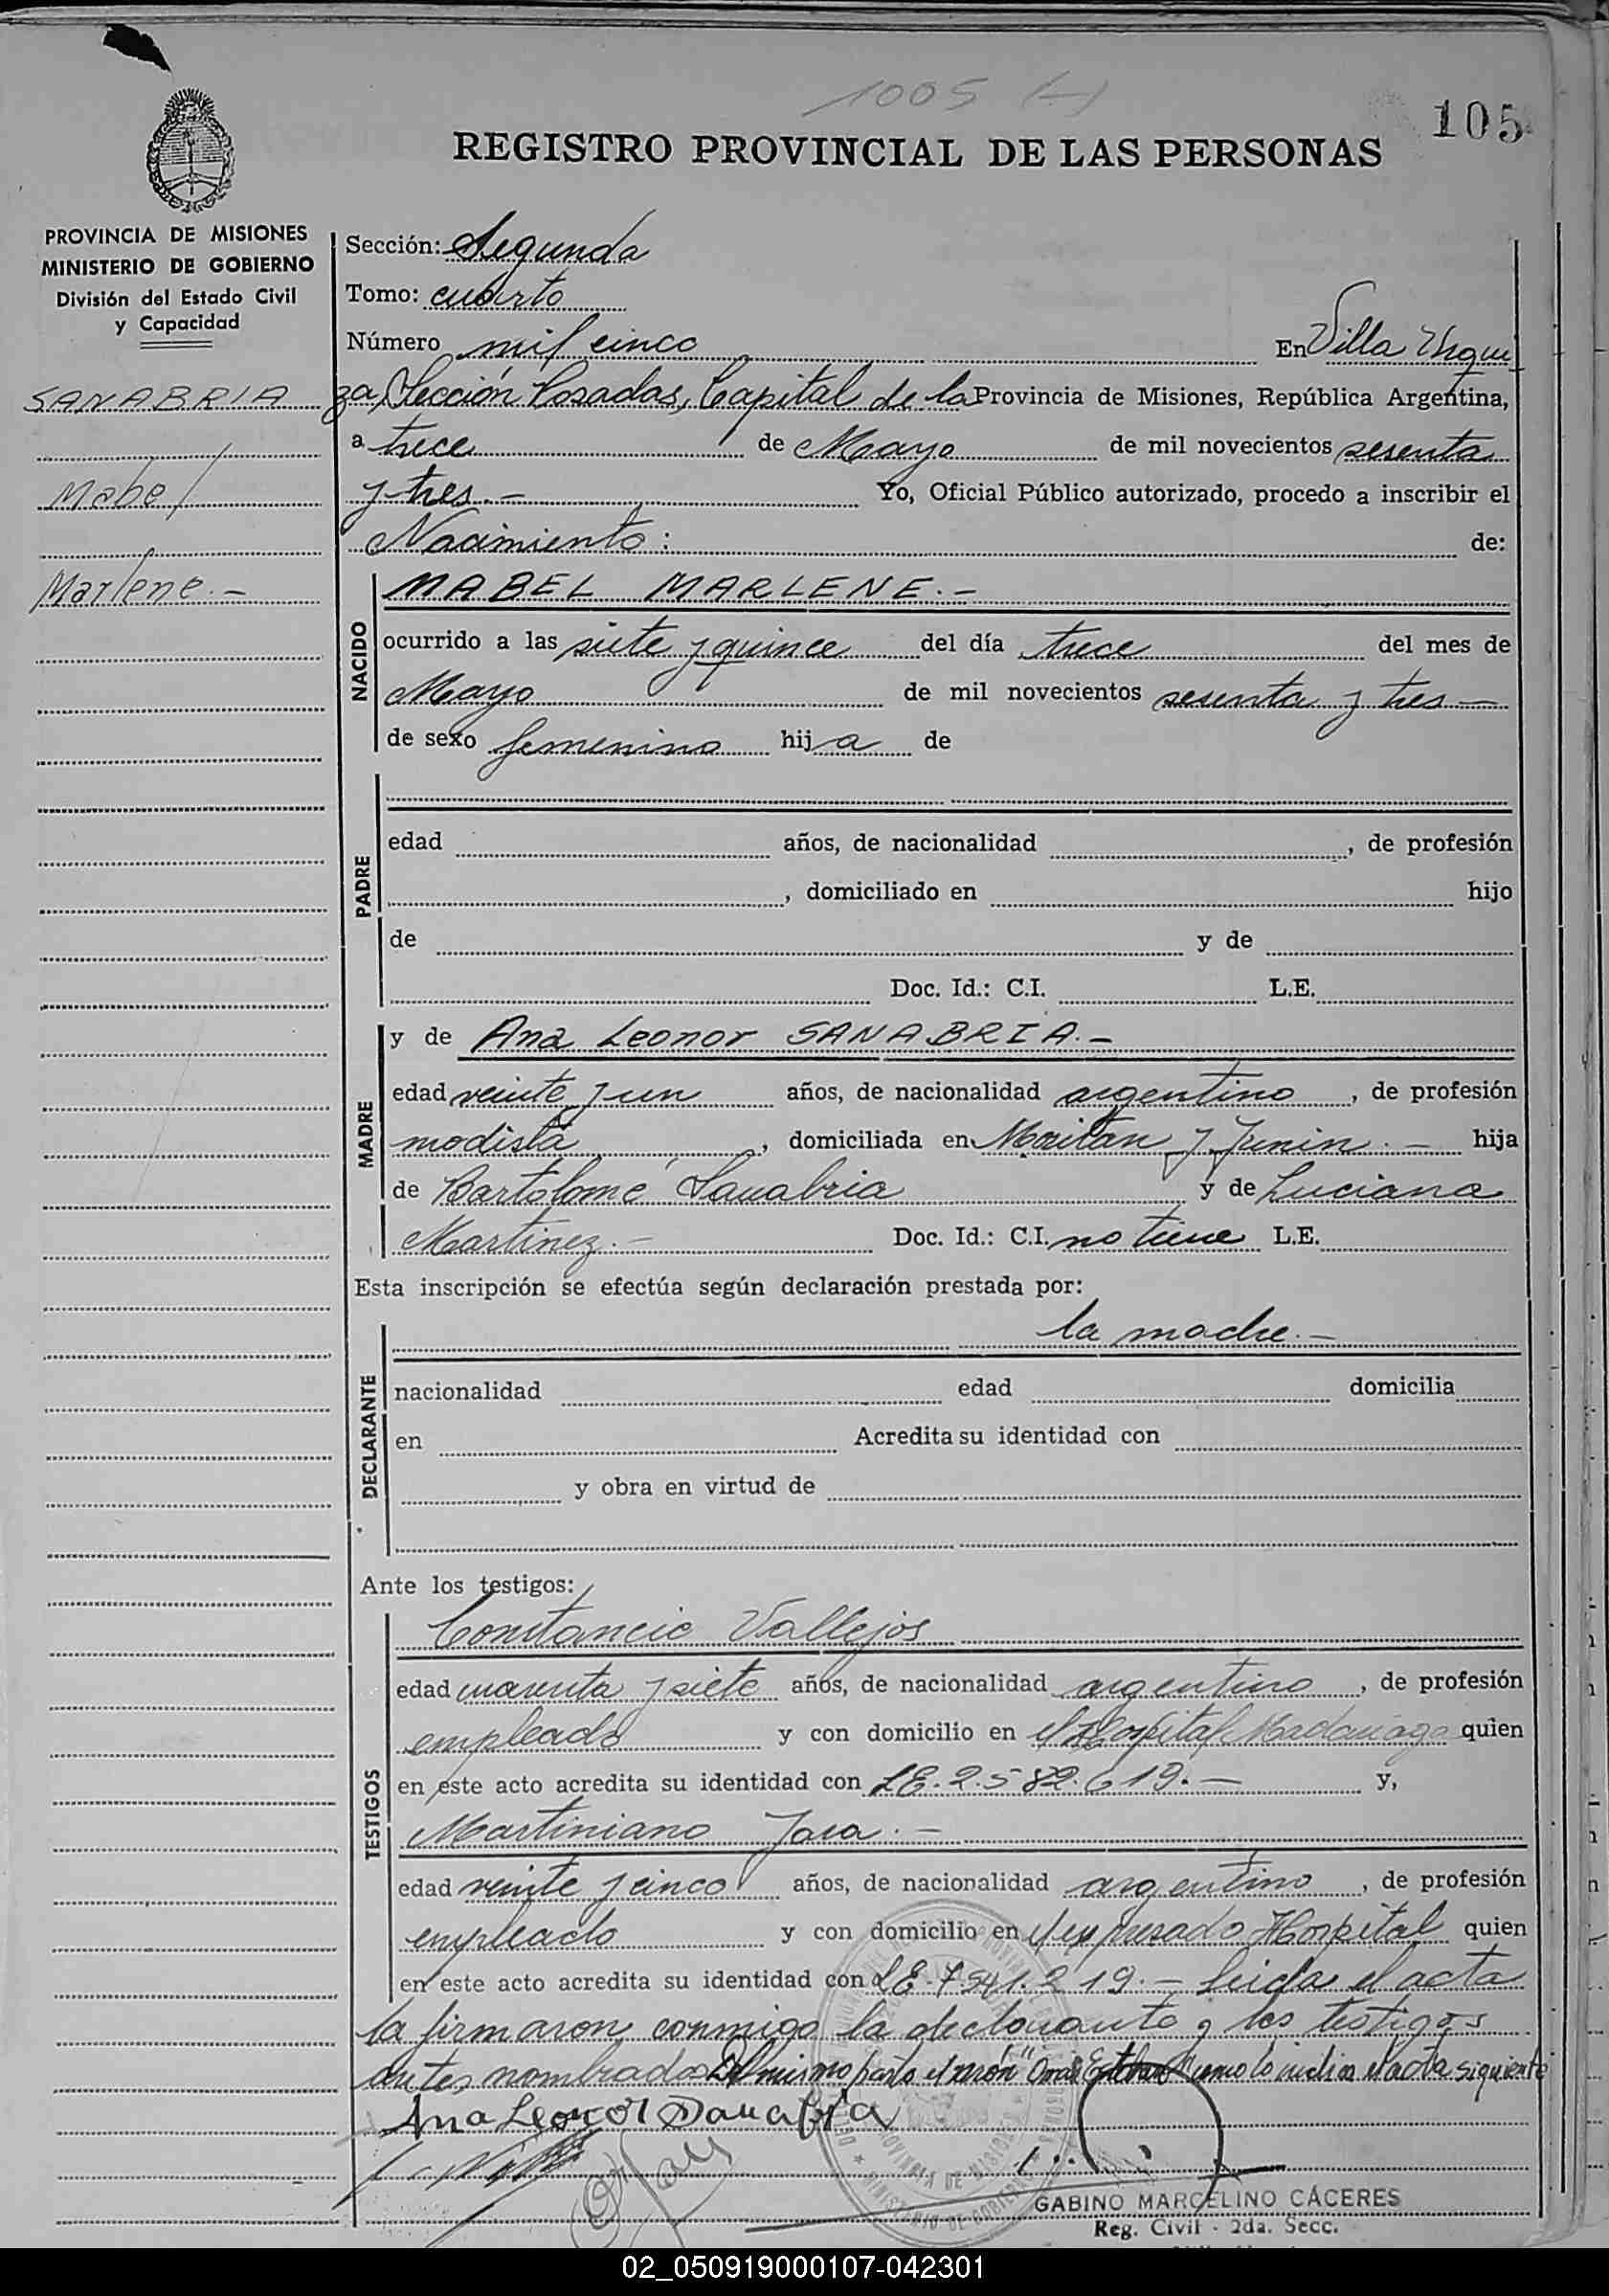 1005 (-)
105
REGISTRO PROVINCIAL DE LAS PERSONAS
PROVINCIA DE MISIONES
MINISTERIO DE GOBIERNO
División del Estado Civil
y Capacidad
SANABRIA
Mabel
Marlene.-
Sección: Segunda
Tomo: cuarto
Número mil cinco En Villa Urqui
za, Sección Posadas, Capital de la Provincia de Misiones, República Argentina,
a trece de Mayo de mil novecientos sesenta
y tres.- Yo, Oficial Público autorizado, procedo a inscribir el
Nacimiento: de:
NACIDO
MABEL MARLENE.-
ocurrido a las siete y quince del día trece del mes de
Mayo de mil novecientos sesenta y tres-
de sexo femenino hija de
PADRE
edad años, de nacionalidad , de profesión
, domiciliado en hijo
de y de
Doc. Id.: C.I. L.E.
MADRE
y de Ana Leonor SANABRIA.-
edad veinte y un años, de nacionalidad argentino, de profesión
modista, domiciliada en y Junin.- hija
de Bartolomé Sanabria y de Luciana
Martinez.- Doc. Id.: C.I. no tiene L.E.
Esta inscripción se efectúa según declaración prestada por:
DECLARANTE
la madre.-
nacionalidad edad domicilia
en Acredita su identidad con
y obra en virtud de
Ante los testigos:
TESTIGOS
Constancio Vallejos
edad cuarenta y siete años, de nacionalidad argentino, de profesión
empleado y con domicilio en el Hospital Madariaga quien
en este acto acredita su identidad con LE. 2.582.619.- y,
Martiniano Jara.-
edad veinte y cinco años, de nacionalidad argentino, de profesión
empleado y con domicilio en el expresado Hospital quien
en este acto acredita su identidad con LE. 7.541.219.- Leida el acta
la firmaron conmigo la declarante y los testigos
antes nombrados. Del mismo parto el varón "Omar Esteban" como lo indica el acta siguiente
Ana Leonor Sanabria
GABINO MARCELINO CÁCERES
Reg. Civil - 2da. Secc.
02_050919000107-042301